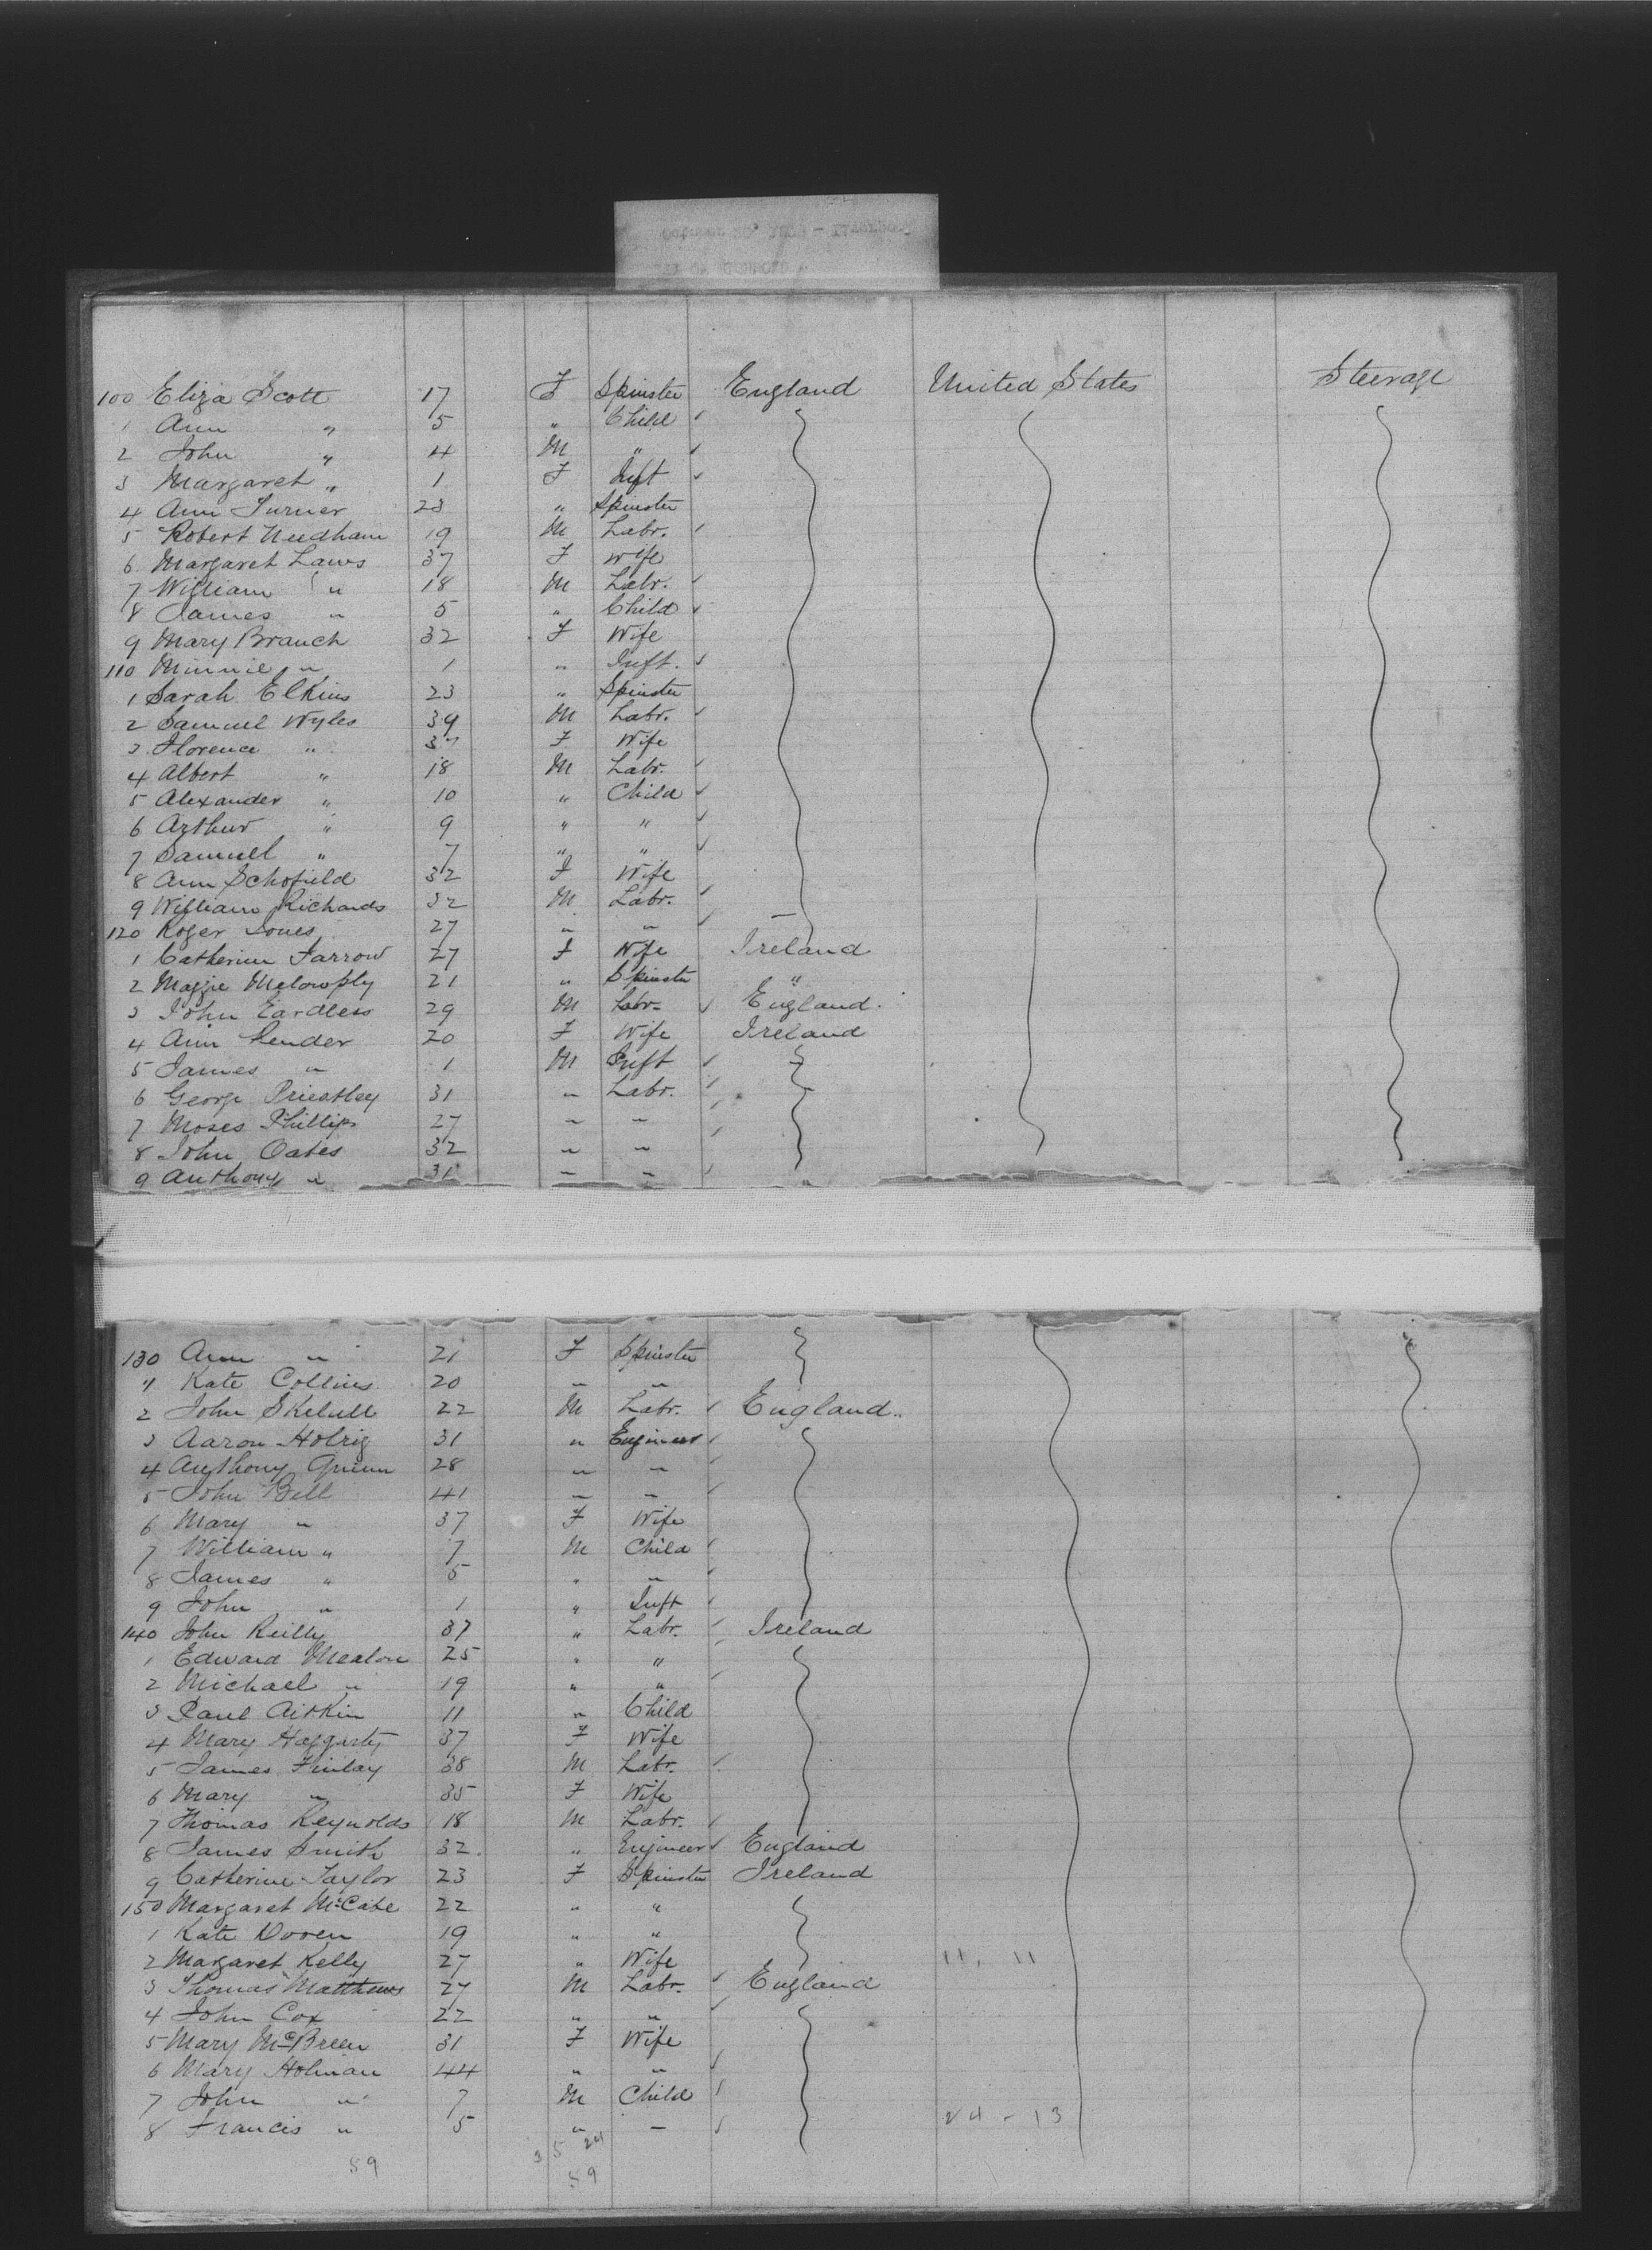 100 Eliza Scott 17 F Spinster England United States Steerage
1 Ann " 5 " Child ✓
2 John " 4 M " ✓
3 Margaret " 1 F Inft ✓
4 Ann Turner 23 " Spinster
5 Robert Needham 19 M Labr. ✓
6 Margaret Laws 37 F Wife
7 William " 18 M Labr. ✓
8 James " 5 " Child ✓
9 Mary Branch 32 F Wife
110 Minnie " 1 " Inft. ✓
1 Sarah Elkins 23 " Spinster
2 Samuel Wyles 39 M Labr. ✓
3 Florence " 37 F Wife
4 Albert " 18 M Labr. ✓
5 Alexander " 10 " Child ✓
6 Arthur " 9 " " ✓
7 Samuel " 7 " " ✓
8 Ann Schofield 32 F Wife
9 William Richards 32 M Labr. ✓
120 Roger Jones 27 " " ✓ —
1 Catherine Farrow 27 F Wife Ireland
2 Maggie 21 " Spinster "
3 John Eardless 29 M Labr. ✓ England.
4 Ann 20 F Wife Ireland
5 James " 1 M Inft ✓
6 George Priestley 31 " Labr. ✓
7 Moses Phillips 27 " " ✓
8 John Oates 32 " " ✓
9 Anthony " 31 " " ✓
130 Ann " 21 F Spinster
1 Kate Collins 20 " "
2 John 22 M Labr. ✓ England.
3 Aaron 31 " Engineer ✓
4 Anthony 28 " " ✓
5 John Bell 41 " " ✓
6 Mary " 37 F Wife
7 William " 7 M Child ✓
8 James " 5 " " ✓
9 John " 1 " Inft ✓
140 John Reilly 37 " Labr. ✓ Ireland
1 Edward Mealon 25 " " ✓
2 Michael " 19 " " ✓
3 Paul Aitkin 11 " Child
4 Mary Haggarty 37 F Wife
5 James Finlay 38 M Labr. ✓
6 Mary " 35 F Wife
7 Thomas Reynolds 18 M Labr. ✓
8 James Smith 32 " Engineer ✓ England
9 Catherine Taylor 23 F Spinster Ireland
150 Margaret McCabe 22 " "
1 Kate Doren 19 " "
2 Margaret Kelly 27 " Wife 11, 11
3 Thomas Matthews 27 M Labr. ✓ England
4 John Cox 22 " " ✓
5 Mary McBreen 31 F Wife
6 Mary Holman 44 " " ✓
7 John " 7 M Child ✓
8 Francis " 5 " — ✓ 24 - 13
59 35 24
59